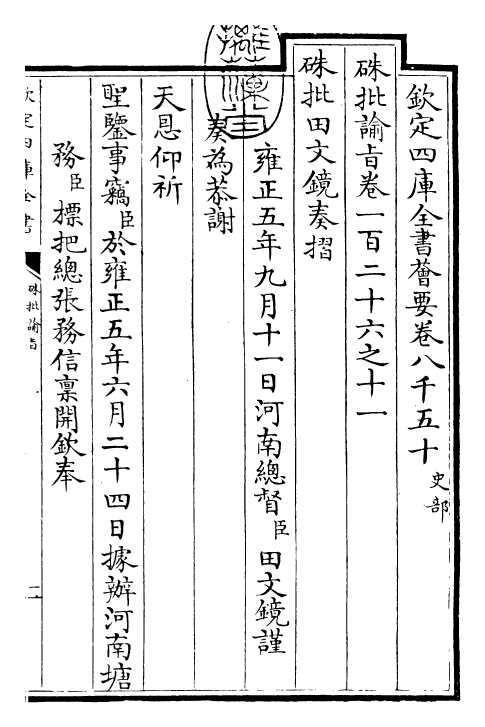 欽定四庫全書薈要卷八千五十 史部
硃批諭旨卷一百二十六之十一
硃批田文鏡奏摺
雍正五年九月十一日河南總督臣田文鏡謹
奏為恭謝
天恩仰祈
聖鑒事竊臣於雍正五年六月二十四日據辦河南塘
務臣標把總張務信禀開欽奉
欽定四庫全書
硃批諭旨